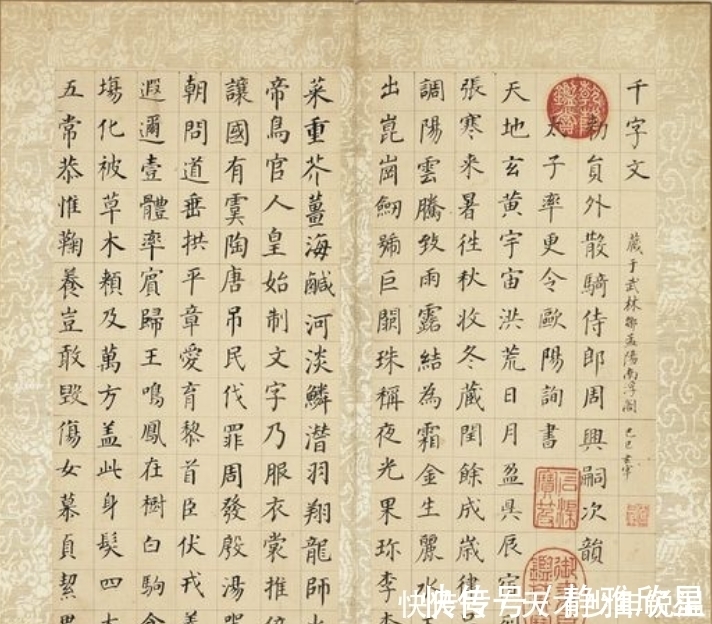 千字文 藏于武林鄒孟陽南浮閣 己巳玄宰
勅員外散騎侍郎周興嗣次韻
太子率更令歐陽詢書
天地玄黃宇宙洪荒日月盈昃辰宿列
張寒来暑往秋收冬藏閏餘成歲律
調陽雲騰致雨露結為霜金生麗水
出崑崗劒號巨闕珠稱夜光果珎李
菜重芥薑海鹹河淡鱗潛羽翔龍師
帝鳥官人皇始制文字乃服衣裳推位
讓國有虞陶唐吊民伐罪周發殷湯
朝問道垂拱平章愛育黎首臣伏戎
遐邇壹體率賓歸王鳴鳳在樹白駒食
塲化被草木賴及萬方盖此身髮四大
五常恭惟鞠養豈敢毀傷女慕貞絜
乾隆鑑賞
快传号
静雅欣星